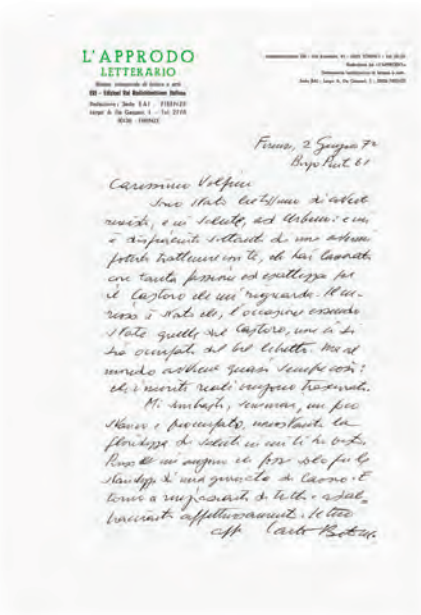 L'APPRODO
LETTERARIO
Rivista trimestrale di lettere e arti
ERI - Edizioni Rai Radiotelevisione Italiana
Redazione: Sede RAI - FIRENZE
Largo A. De Gasperi, 1 - Tel. 2778
50136 - FIRENZE
Firenze, 2 Giugno 72
Borgo Pinti 61
Carissimo Volpini
sono stato lietissimo di averti
rivisto, e in salute, ad Urbino: e mi
è dispiaciuto soltanto di non averne
potuto trattenere con te, che hai lavorato
con tanta passione ed esattezza per
il Castoro che mi riguarda. Il cu-
rioso è stato che, l'occasione essendo
stata quella del Castoro, non ci si
sia occupati del bel libretto. Ma al
mondo avviene quasi sempre così:
che i meriti reali vengono trascurati.
Mi sembrasti, semmai, un poco
stanco e preoccupato, nonostante la
floridezza di salute in cui ti ho visto.
Penso e mi auguro che fosse solo per la
stanchezza di una giornata di caos. E
torno a ringraziarti di tutto e ad ab-
bracciarti affettuosamente. Il tuo
aff. Carlo Betocchi